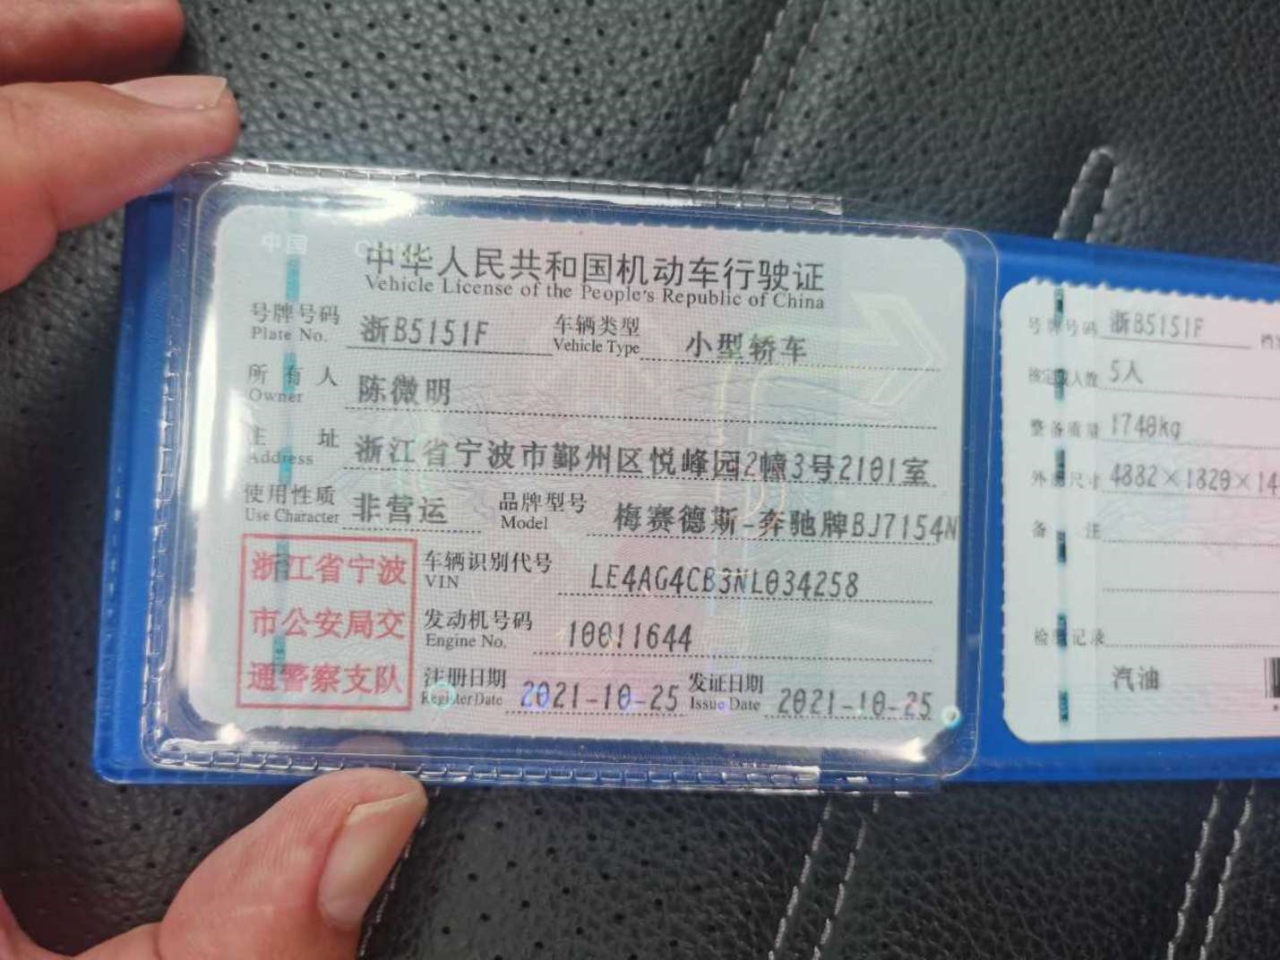 中国
中华人民共和国机动车行驶证
Vehicle License of the People's Republic of China
号牌号码 浙B5151F 车辆类型 小型轿车
Plate No. Vehicle Type
所有人 陈微明
Owner
主址 浙江省宁波市鄞州区悦峰园2幢3号2101室
Address
使用性质 非营运 品牌型号 梅赛德斯-奔驰牌BJ7154N
Use Character Model
浙江省宁波
市公安局交
通警察支队
车辆识别代号 LE4AG4CB3NL034258
VIN
发动机号码 10011644
Engine No.
注册日期 2021-10-25 发证日期 2021-10-25
Register Date Issue Date
号牌号码 浙B5151F
核定载人数 5人
整备质量 1740kg
外廓尺寸 4882×1820×14
备注
检验记录
汽油